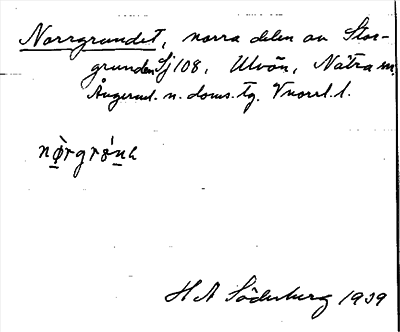 Norrgrundet, norra delen av Stor-
grunden Sj 108, Ulvön, Nätra sn,
Ångerml. n. doms. tg. Vnorrl. l.
H A Söderberg 1939